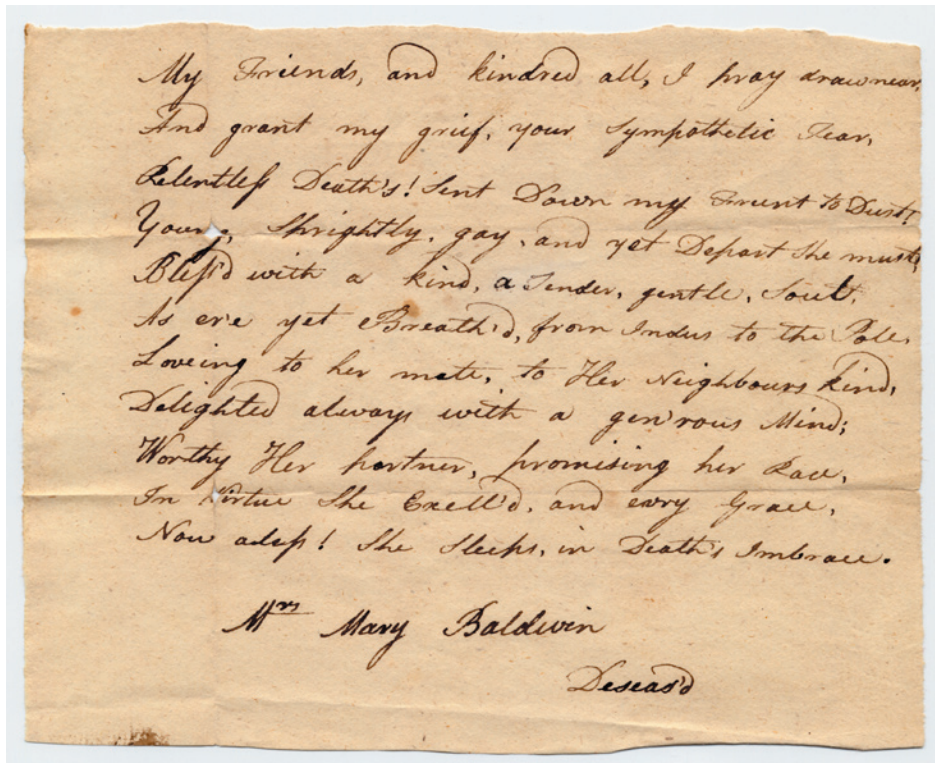 My Friends, and kindred all, I pray draw near,
And grant my grief, your Sympathetic Tear,
Relentless Death's! Sent Down my to Dust!
Young, Sprightly, gay, and yet Depart She must,
Bless'd with a kind, a Tender, gentle, Soul,
As ere yet Breath'd, from Indus to the Pole,
Loveing to her mate, to Her Neighbours kind,
Delighted always with a gen'rous Mind;
Worthy Her partner, promising her Race,
In Virtue She Exell'd, and evry Grace,
Now alass! She Sleeps, in Death's Imbrace.
Mrs Mary Baldwin
Deseas'd